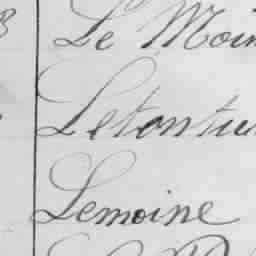 Le Moin
Letontu
Lemoine